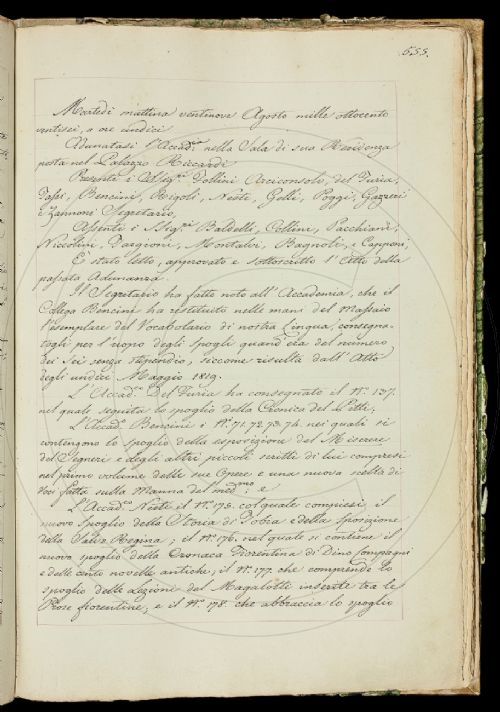 655.
Martedì mattina ventinove Agosto mille ottocento
ventisei, a ore undici
Adunatasi l'Accad.ia nella Sala di sua Residenza
posta nel Palazzo Riccardi
Presenti i Sigg.ri Follini Arciconsolo, del Furia,
Fossi, Bencini, Rigoli, Nesti, Gelli, Poggi, Gazzeri
e Zannoni Segretario,
Assenti i Sigg.ri Baldelli, Collini, Pacchiani,
Niccolini, Targioni, Montalvi, Bagnoli, e Capponi,
È stato letto, approvato e sottoscritto l'Atto della
passata Adunanza.
Il Segretario ha fatto noto all'Accademia, che il
Collega Bencini ha restituito nelle mani del Massaio
l'esemplare del Vocabolario di nostra Lingua, consegna-
togli per l'uopo degli spogli quand'era del numero
dei sei senza stipendio, siccome risulta dall'Atto
degli undici Maggio 1819.
L'Accad.co Del Furia ha consegnato il N.o 137.
nel quale seguita lo spoglio della Cronica del Pitti;
L'Accad.co Bencini i N.i 71. 72. 73. 74. nei quali si
contengono lo spoglio della esposizione del Miserere
del Segneri e degli altri piccoli scritti di lui compresi
nel primo volume delle sue Opere e una nuova scelta di
Voci fatta sulla Manna del med.mo; e
L'Accad.co Nesti il N.o 175. col quale compiesi il
nuovo spoglio della Storia di Tobia e della Sposizione
della Salve Regina; il N.o 176. nel quale si contiene il
nuovo spoglio della Cronaca Fiorentina di Dino Compagni
e delle cento novelle antiche; il N.o 177. che comprende lo
spoglio delle Lezioni del Magalotti inserite tra le
Prose fiorentine, e il N.o 178. che abbraccia lo spoglio